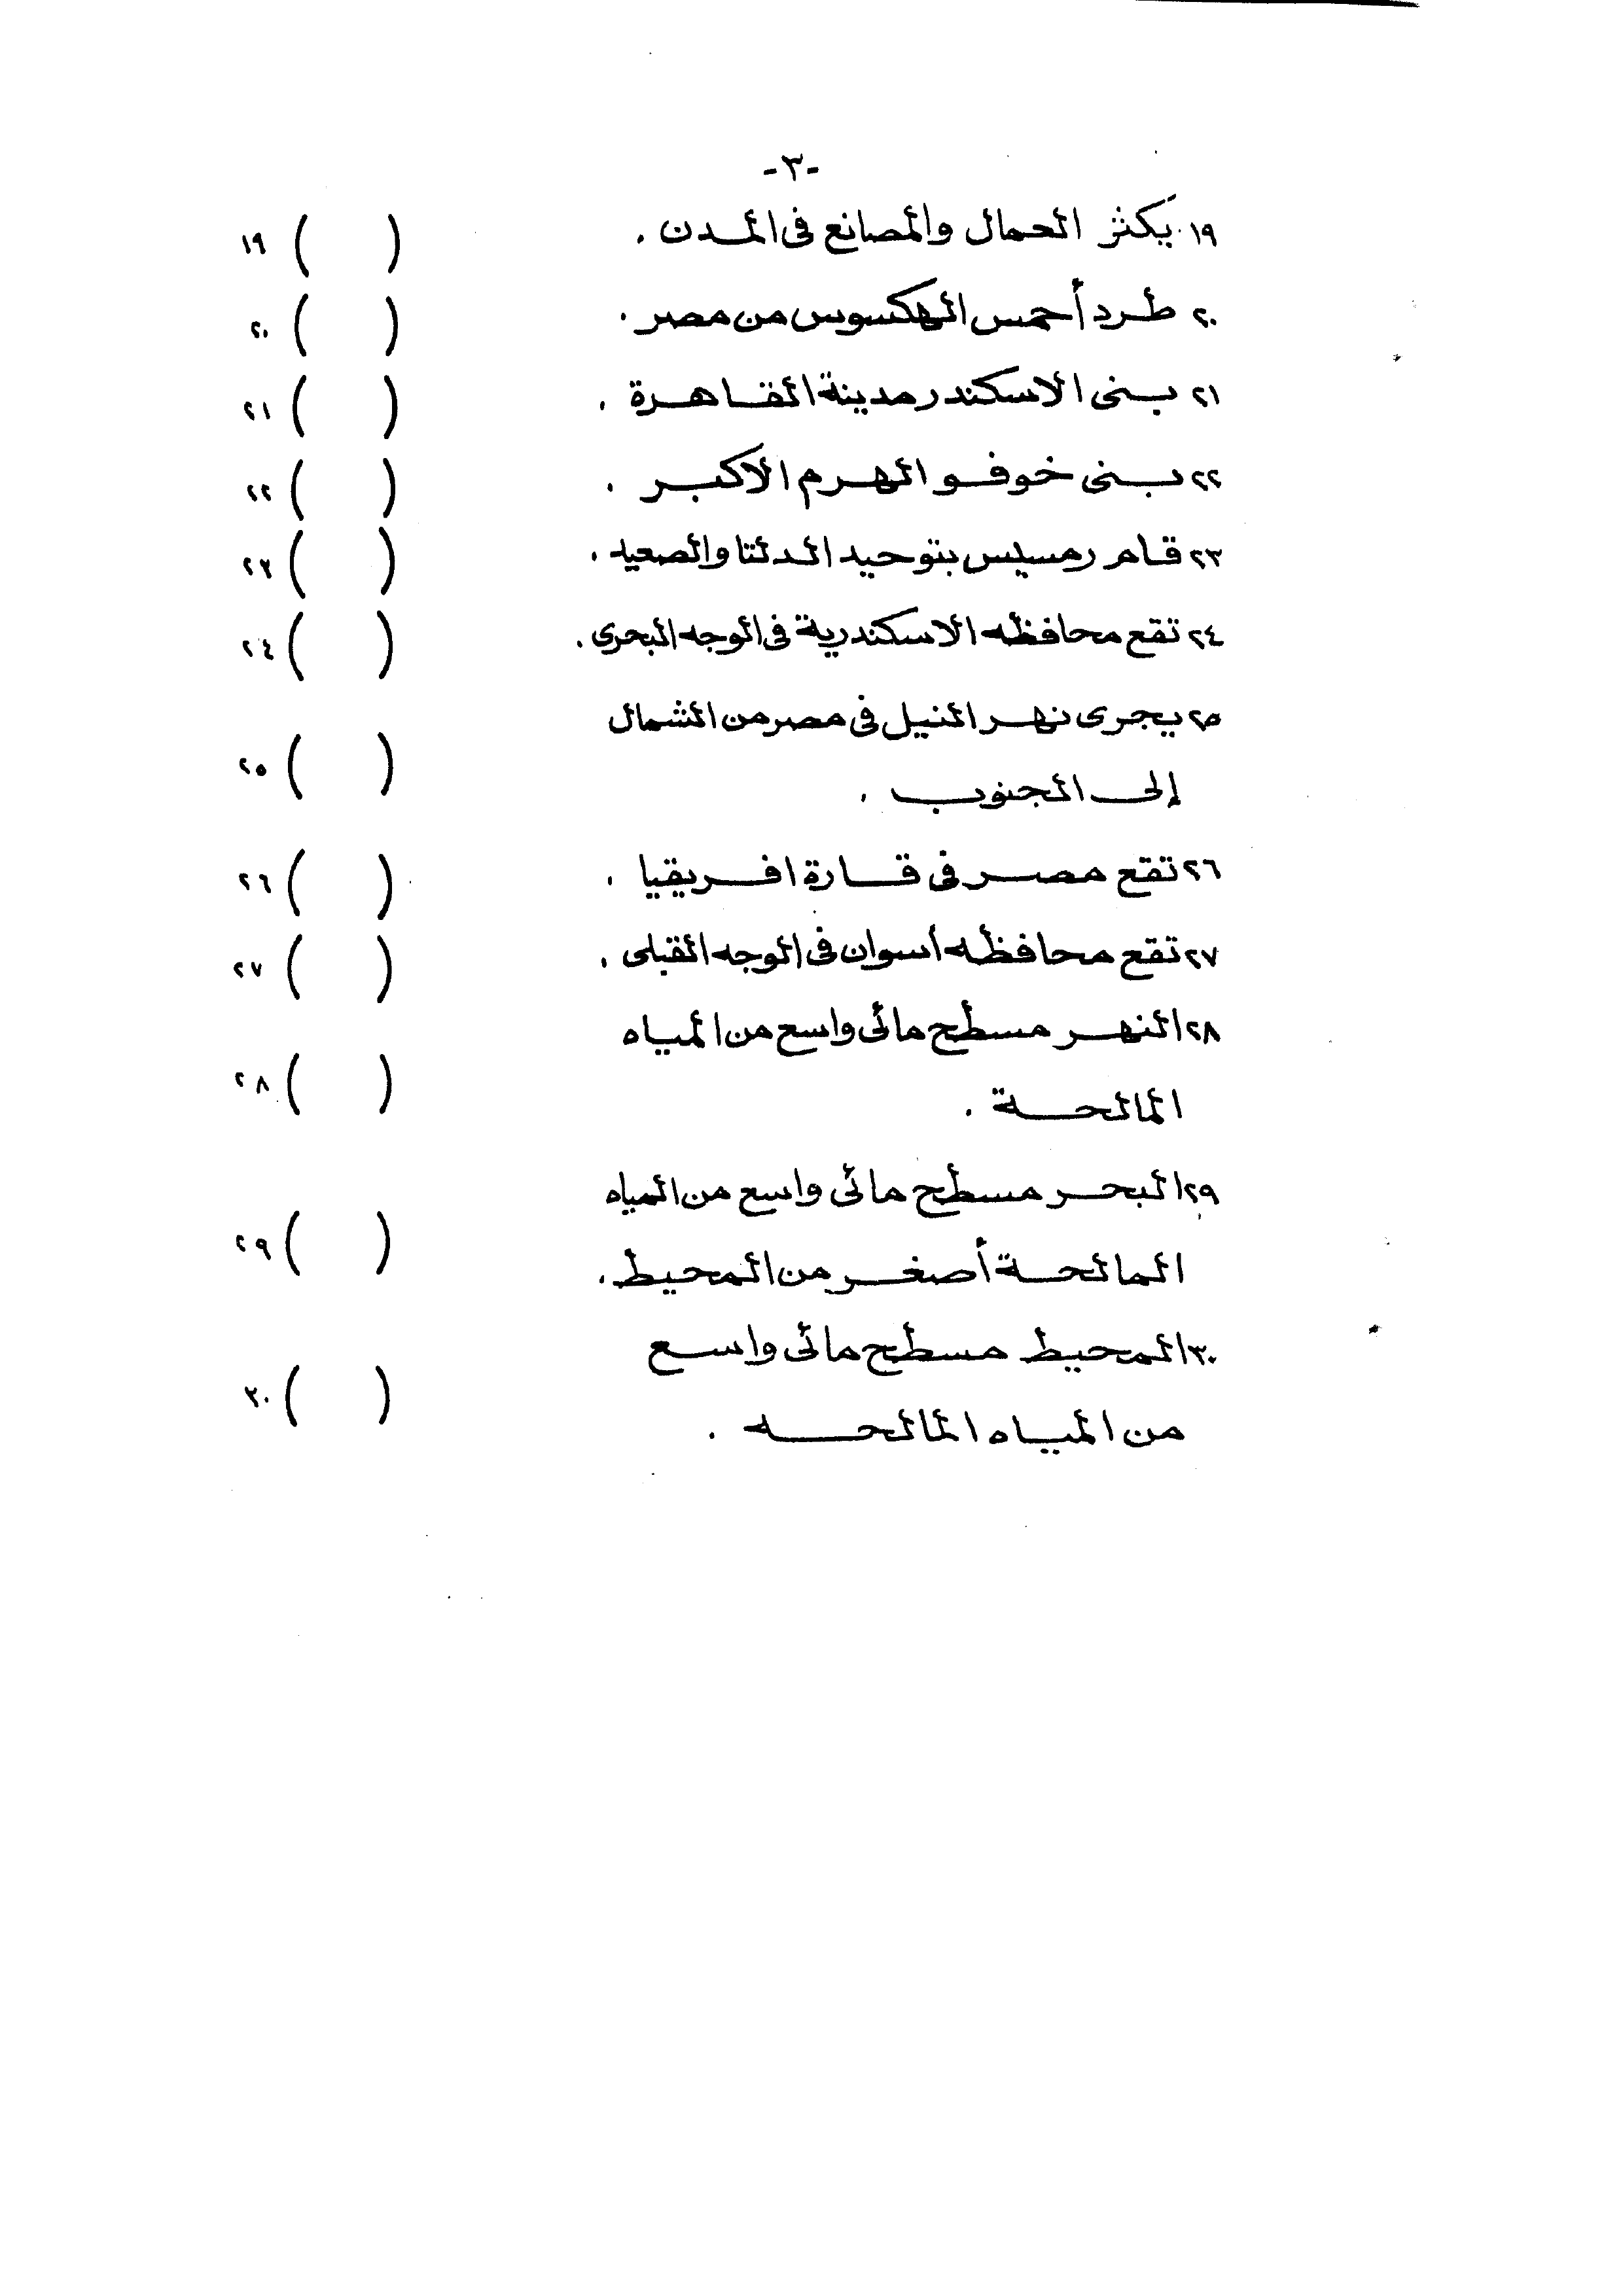 -٣-
١٩. يكثر العمال والمصانع فى المدن . ( ) ١٩
٢٠. طرد أحمس الهكسوس من مصر . ( ) ٢٠
٢١ بنى الاسكندر مدينة القاهرة . ( ) ٢١
٢٢ بنى خوفو الهرم الاكبر . ( ) ٢٢
٢٣ قام رمسيس بتوحيد الدلتا والصعيد . ( ) ٢٣
٢٤ تقع محافظه الاسكندرية فى الوجه البحرى . ( ) ٢٤
٢٥ يجرى نهر النيل فى مصر من الشمال
إلى الجنوب . ( ) ٢٥
٢٦ تقع مصر فى قارة افريقيا . ( ) ٢٦
٢٧ تقع محافظه أسوان فى الوجه القبلى . ( ) ٢٧
٢٨ النهر مسطح مائى واسع من المياه
المالحة . ( ) ٢٨
٢٩ البحر مسطح مائى واسع من المياه
المالحة أصغر من المحيط . ( ) ٢٩
٣٠ المحيط مسطح مائى واسع
من المياه المالحه . ( ) ٣٠